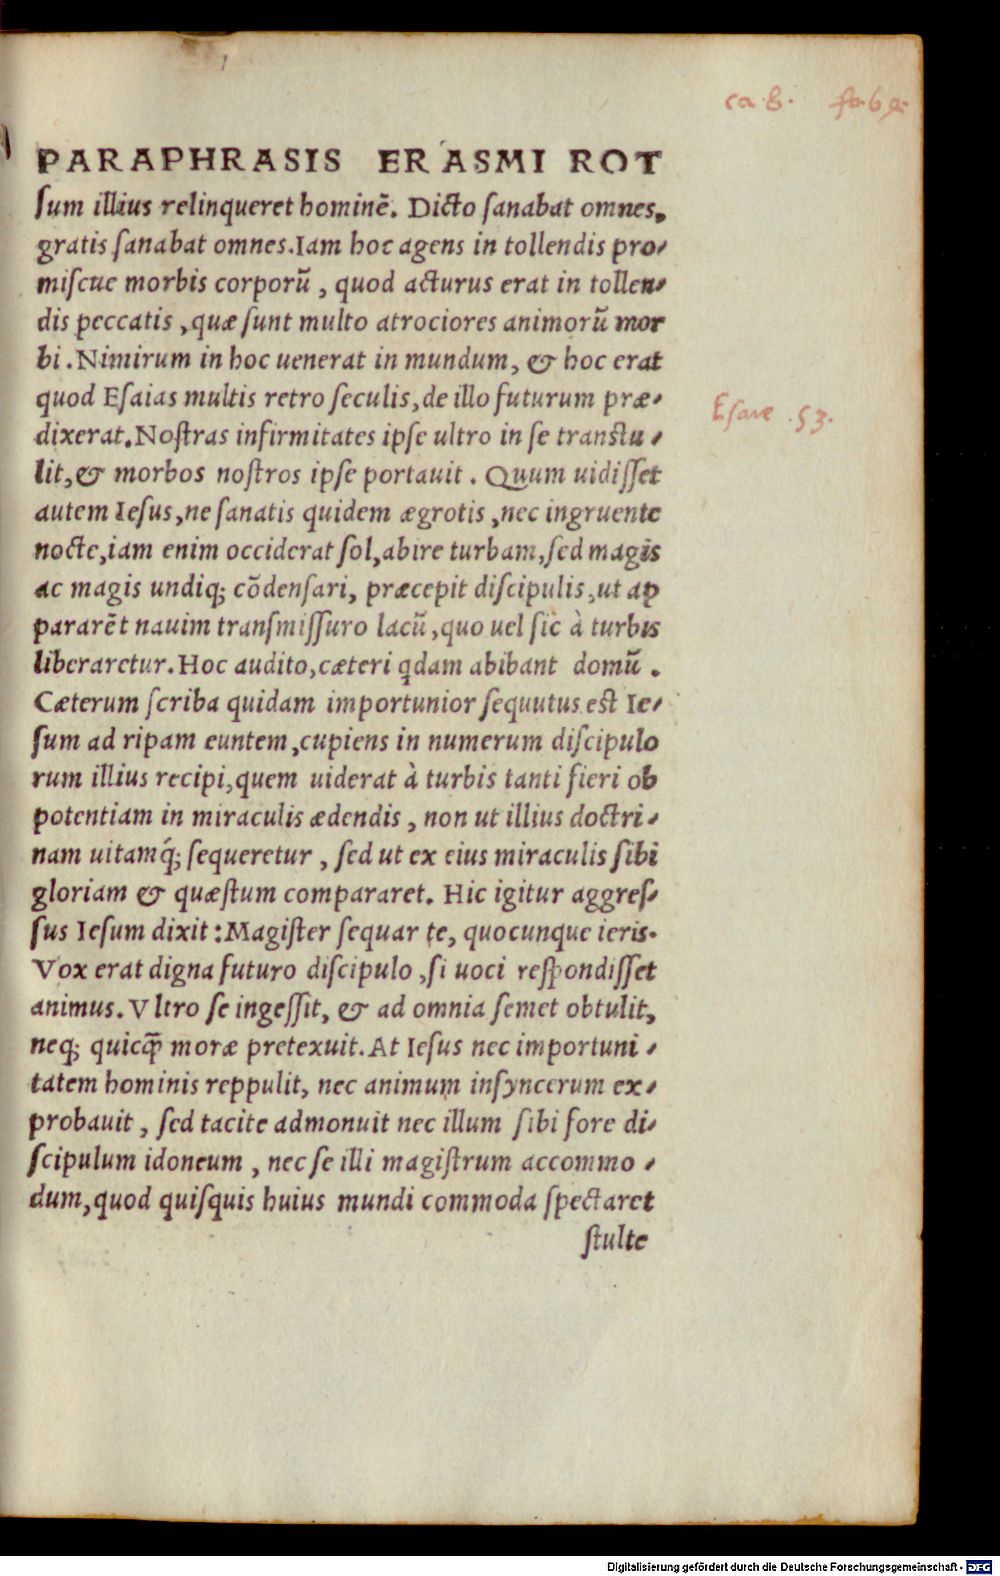 ca. 8.
PARAPHRASIS ERASMI ROT
ſum illius relinqueret hominē. Dicto ſanabat omnes,
gratis ſanabat omnes. Iam hoc agens in tollendis pro-
miſcue morbis corporū, quod acturus erat in tollen-
dis peccatis, quæ ſunt multo atrociores animorū mor
bi. Nimirum in hoc uenerat in mundum, & hoc erat
quod Eſaias multis retro ſeculis, de illo futurum præ-
Esaie .53.
dixerat. Noſtras infirmitates ipſe ultro in ſe tranſtu-
lit, & morbos noſtros ipſe portauit. Quum uidiſſet
autem Ieſus, ne ſanatis quidem ægrotis, nec ingruente
nocte, iam enim occiderat ſol, abire turbam, ſed magis
ac magis undiq; cōdenſari, præcepit diſcipulis, ut ap
pararēt nauim tranſmiſſuro lacū, quo uel ſic à turbis
liberaretur. Hoc audito, cæteri q̄dam abibant domū.
Cæterum ſcriba quidam importunior ſequutus eſt Ie-
ſum ad ripam euntem, cupiens in numerum diſcipulo
rum illius recipi, quem uiderat à turbis tanti fieri ob
potentiam in miraculis ædendis, non ut illius doctri-
nam uitamq́; ſequeretur, ſed ut ex eius miraculis ſibi
gloriam & quæſtum compararet. Hic igitur aggreſ-
ſus Ieſum dixit: Magiſter ſequar te, quocunque ieris.
Vox erat digna futuro diſcipulo, ſi uoci reſpondiſſet
animus. Vltro ſe ingeſſit, & ad omnia ſemet obtulit,
neq; quicq̄ moræ pretexuit. At Ieſus nec importuni-
tatem hominis reppulit, nec animum inſyncerum ex-
probauit, ſed tacite admonuit nec illum ſibi fore di-
ſcipulum idoneum, nec ſe illi magiſtrum accommo-
dum, quod quiſquis huius mundi commoda ſpectaret
ſtulte
Digitalisierung gefördert durch die Deutsche Forschungsgemeinschaft - DFG